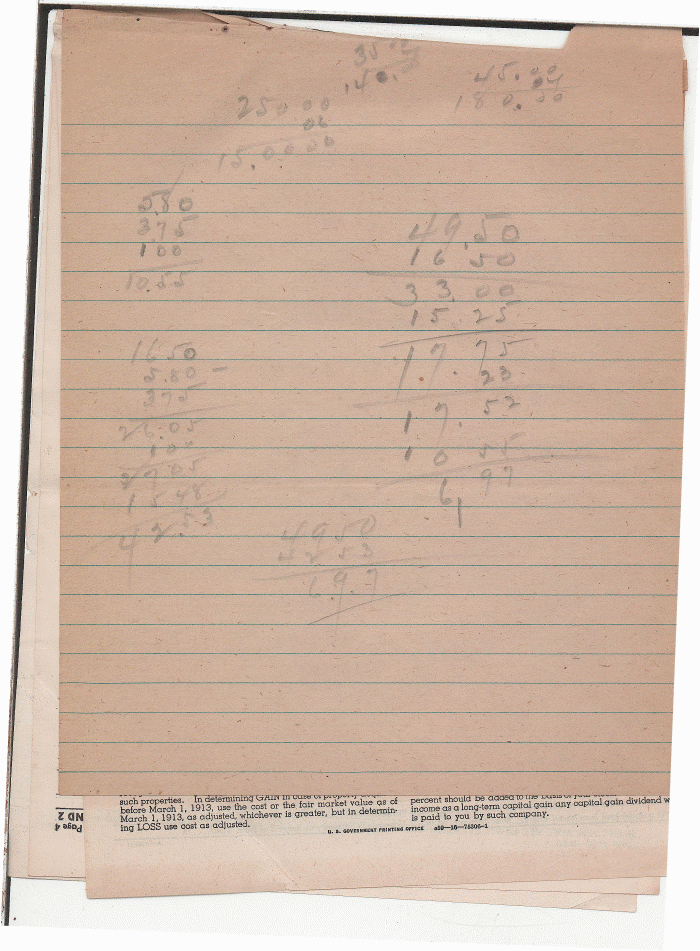 45.00
04
180.00
25000
06
15.0000
0.80
3.75
1 00
10.55
49.50
16 50
33 00
15 25
17.75
23
17.52
10 55
6 97
1650
5.80 -
375
26.05
100
2705
15 48
42.53
4950
4253
6.97
such properties. In determining GAIN in case of property
before March 1, 1913, use the cost or the fair market value as of
March 1, 1913, as adjusted, whichever is greater, but in determin-
ing LOSS use cost as adjusted.
percent should be added to the basis of
income as a long-term capital gain any capital gain dividend w
is paid to you by such company.
U. S. GOVERNMENT PRINTING OFFICE
Page 4
ND 2